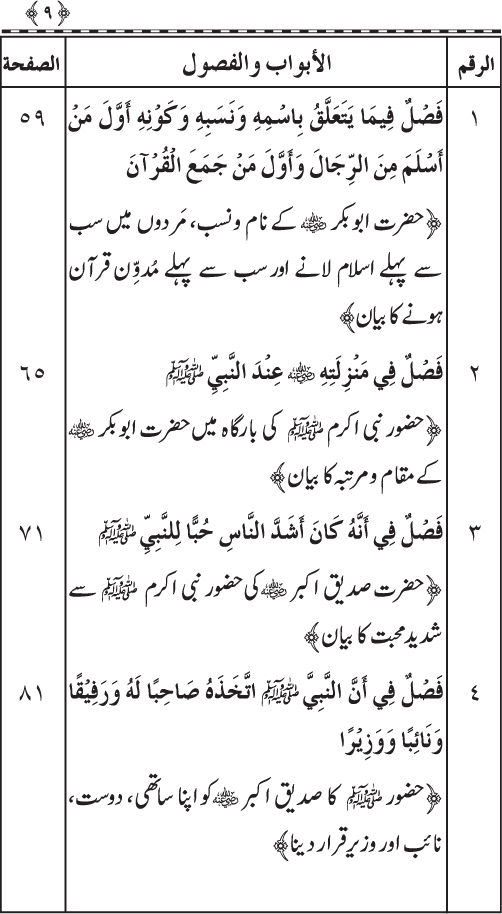 ﴿ ٩ ﴾
الرقم الأبواب والفصول الصفحة
١ فَصْلٌ فِيمَا يَتَعَلَّقُ بِاسْمِهِ وَنَسَبِهِ وَكَوْنِهِ أَوَّلَ مَنْ ٥٩
أَسْلَمَ مِنَ الرِّجَالِ وَأَوَّلَ مَنْ جَمَعَ الْقُرْآنَ
﴿حضرت ابو بکر رضی اللہ عنہ کے نام و نسب، مَردوں میں سب
سے پہلے اسلام لانے اور سب سے پہلے مُدوِّن قرآن
ہونے کا بیان﴾
٢ فَصْلٌ فِي مَنْزِلَتِهِ رضی اللہ عنہ عِنْدَ النَّبِيِّ ﷺ ٦٥
﴿حضور نبی اکرم ﷺ کی بارگاہ میں حضرت ابو بکر رضی اللہ عنہ
کے مقام و مرتبہ کا بیان﴾
٣ فَصْلٌ فِي أَنَّهُ كَانَ أَشَدَّ النَّاسِ حُبًّا لِلنَّبِيِّ ﷺ ٧١
﴿حضرت صدیق اکبر رضی اللہ عنہ کی حضور نبی اکرم ﷺ سے
شدید محبت کا بیان﴾
٤ فَصْلٌ فِي أَنَّ النَّبِيَّ ﷺ اتَّخَذَهُ صَاحِبًا لَهُ وَرَفِيْقًا ٨١
وَنَائِبًا وَوَزِيْرًا
﴿حضور ﷺ کا صدیق اکبر رضی اللہ عنہ کو اپنا ساتھی، دوست،
نائب اور وزیر قرار دینا﴾